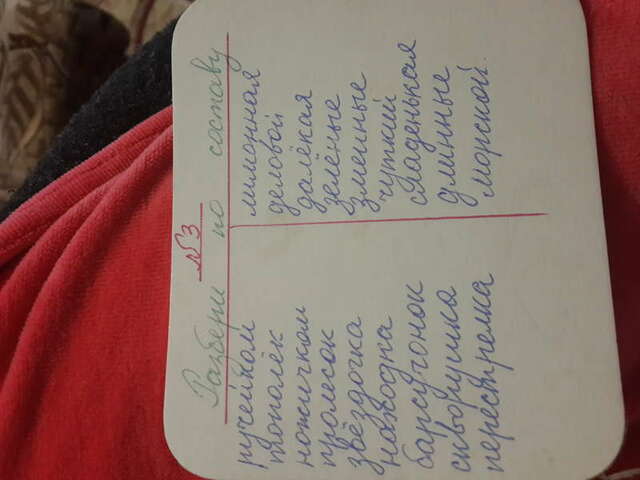 №3
Разбери по составу
ручейком
тополёк
ножичком
пролесок
звёздочка
находна
барсучонок
скворушка
перестрелка
лимонная
деловой
далёкая
зелёные
змеиные
чуткий
сладенькая
длинные
морской